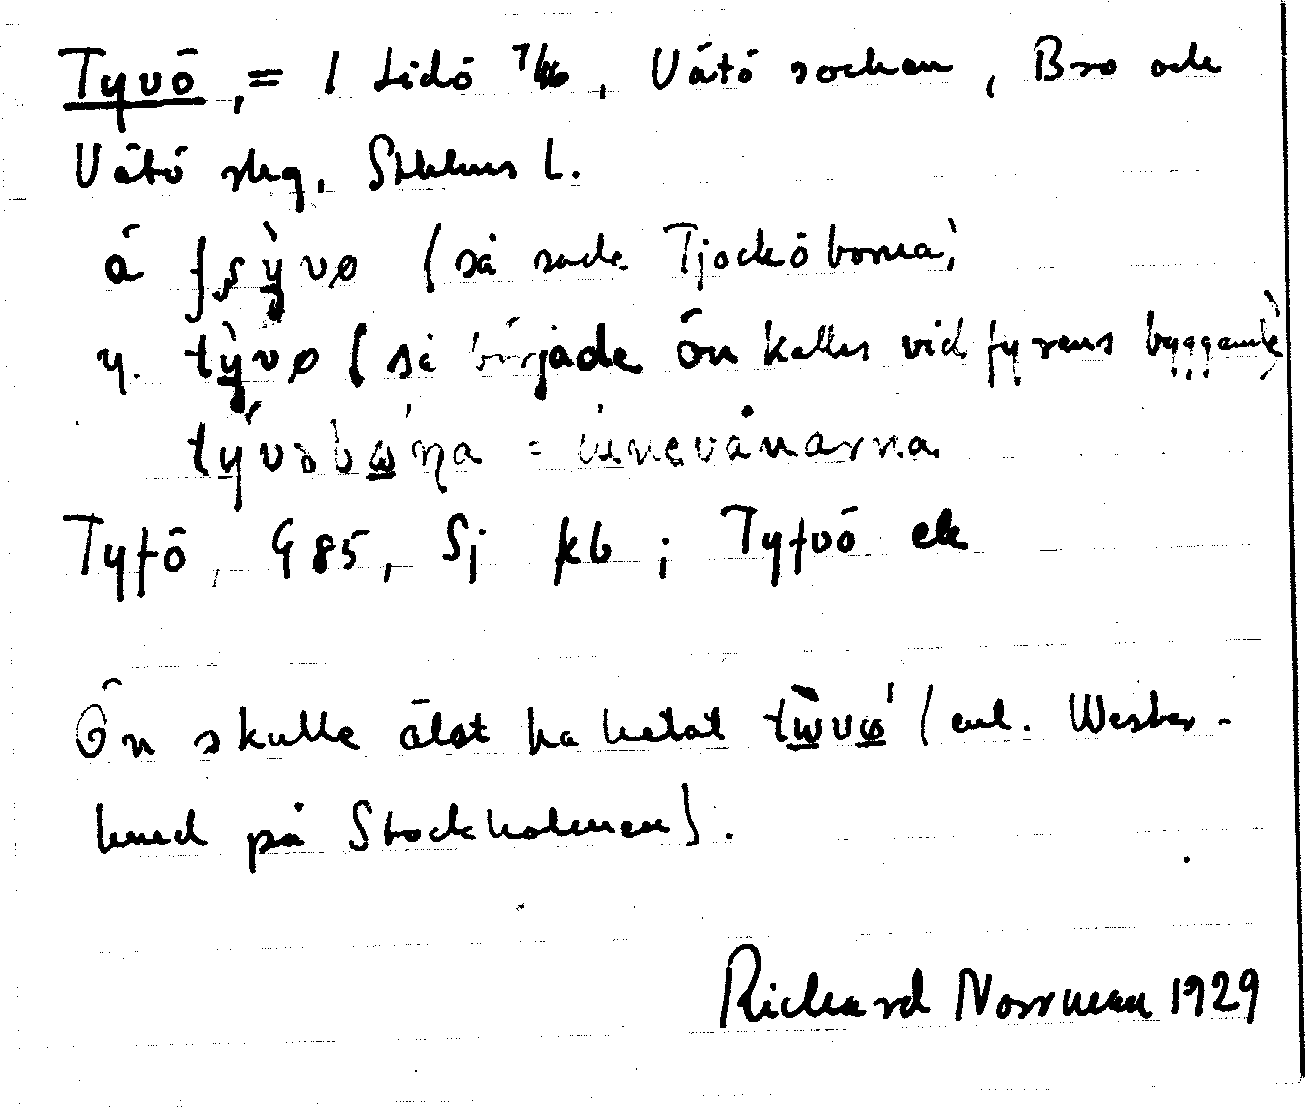 Tyvö, = 1 Lidö 7/46, Vätö socken, Bro och
Vätö slg, Sthlms l.
ä ʃʂỳvø (så sade Tjocköborna)
y. tỳvø (så började ön kallas vid fyrens byggande)
invånarna
Tyfö, G 85, Sj kb ; Tyfvö ek
Ön skulle älst ha hetat (enl. Wester-
lund på Stockholmen).
Rickard Norrman 1929